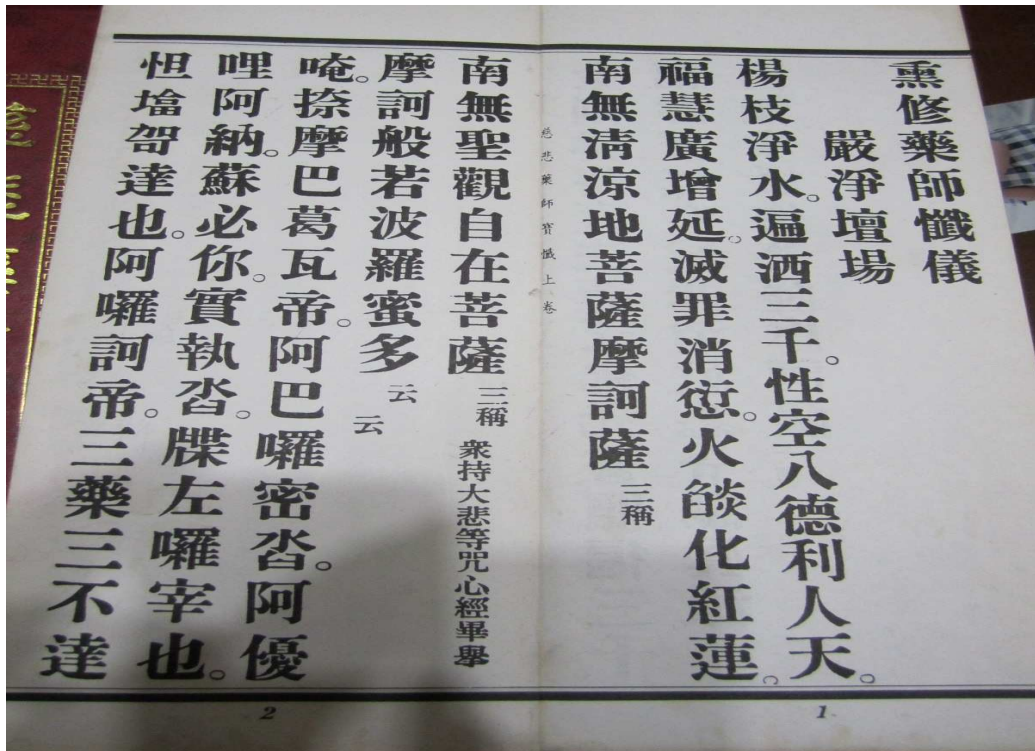 熏修藥師懺儀
嚴淨壇場
楊枝淨水。遍洒三千。性空八德利人天。
福慧廣增延。滅罪消愆。火燄化紅蓮。
南無清涼地菩薩摩訶薩 三稱
慈悲藥師寶懺上卷
南無聖觀自在菩薩 三稱 衆持大悲等咒心經畢舉
摩訶般若波羅蜜多 云云
唵。捺摩巴葛瓦帝。阿巴囉密沓。阿優
哩阿納。蘇必你。實執沓。牒左囉宰也。
怛塔哿達也。阿囉訶帝。三藥三不達
1
2